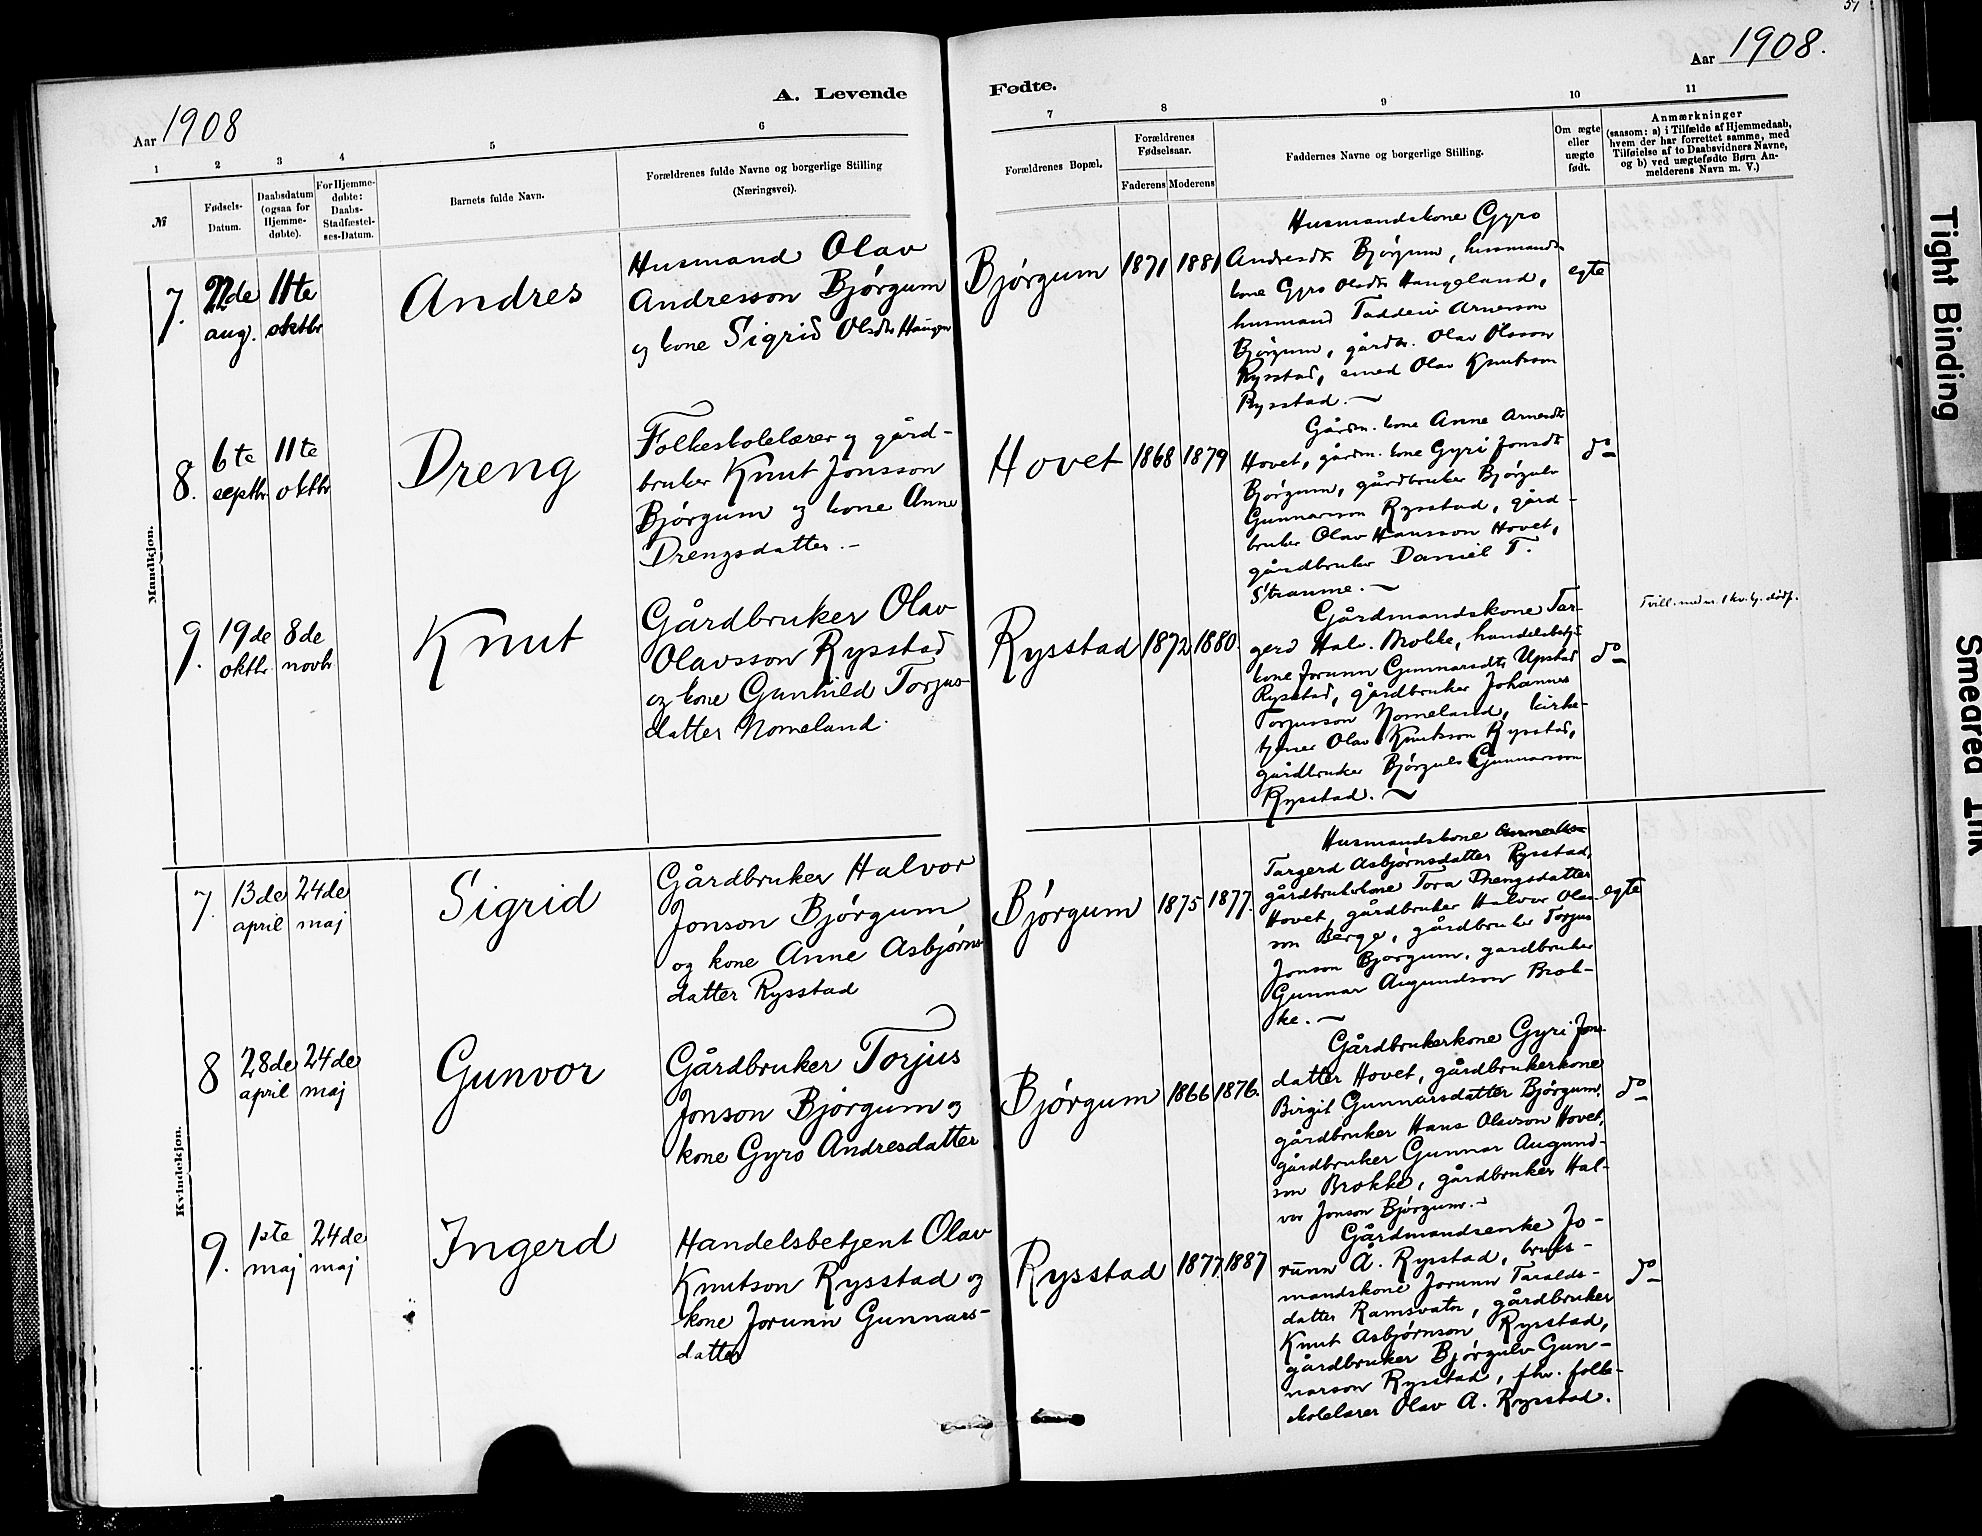 51
Aar 1908.
Aar 1908
A. Levende
Fødte.
1
2
3
4
5
6
7
8
9
10
11
№
Fødsels-
Datum.
Daabsdatum
(ogsaa for
Hjemme-
døbte).
For Hjemme-
døbte:
Daabs-
Stadfæstel-
ses-Datum.
Barnets fulde Navn.
Forældrenes fulde Navne og borgerlige Stilling
(Næringsvei).
Forældrenes Bopæl.
Forældrenes
Fødselsaar.
Faderens
Moderens
Faddernes Navne og borgerlige Stilling.
Om ægte
eller
uægte
født.
Anmærkninger
(saasom: a) i Tilfælde af Hjemmedaab,
hvem der har forrettet samme, med
Tilføielse af to Daabsvidners Navne,
og b) ved uægtefødte Børn An-
melderens Navn m. V.)
Mandkjøn.
7.
22de
aug.
11te
oktbr
Andres
Husmand Olav
Andresson Bjørgum
og kone Sigrid Olsdtr Haugen
Bjørgum
1871
1881
Husmandskone Gyro
Andresdtr Bjørgum, husmands-
kone Gyro Olsdtr Haugeland,
husmand Taddeiv Arneson
Bjørgum, gårdbr. Olav Olsson
Rysstad, Olav Knutson
Rysstad. —
egte
8.
6te
septbr
11te
oktbr
Dreng
Folkeskolelærer og gård-
bruker Knut Jonsson
Bjørgum og kone Anne
Drengsdatter. -
Hovet
1868
1879
Gårdm. kone Anne Arnesdtr
Hovet, gårdm. kone Gyri Jonsdtr
Bjørgum, gårdbruker Bjørgulv
Gunnarson Rysstad, gård-
bruker Olav Hansson Hovet,
gårdbruker Daniel T.
Straume. —
do
9.
19de
oktbr
8de
novbr
Knut
Gårdbruker Olav
Olavsson Rysstad
og kone Gunhild Torjus-
datter Nomeland.
Rysstad
1872
1880.
Gårdmandskone Tar-
gerd Halv. Brokke, handelsbetj.
kone Jorunn Gunnarsdtr Upstad
Rysstad, gårdbruker Johannes
Torjusson Nomeland, kirke-
tjener Olav Knutson Rysstad,
gårdbruker Bjørgulv Gunnarsson
Rysstad. —
do
Tvill. med nr. 1 kv. kj. dødf.
Kvindekjøn.
7.
13de
april
24de
maj
Sigrid
Gårdbruker Halvor
Jonson Bjørgum
og kone Anne Asbjørns-
datter Rysstad
Bjørgum
1875
1877.
Husmandskone
Targerd Asbjørnsdatter Rysstad,
gårdbrukerkone Tora Drengsdatter
Hovet, gårdbruker Halvor Olav-
son Berge, gårdbruker Torjus
Jonson Bjørgum, gårdbruker
Gunnar Augundson Brok-
ke. —
egte
8
28de
april
24de
maj
Gunvor
Gårdbruker Torjus
Jonson Bjørgum og
kone Gyro Andresdatter
Bjørgum
1866
1876.
Gårdbrukerkone Gyri Jons-
datter Hovet, gårdbrukerkone
Birgit Gunnarsdatter Bjørgum,
gårdbruker Hans Olavson Hovet,
gårdbruker Gunnar Augund-
son Brokke, gårdbruker Hal-
vor Jonson Bjørgum. -
do
9.
1ste
maj
24de
maj
Ingerd
Handelsbetjent Olav
Knutson Rysstad og
kone Jorunn Gunnars-
datter
Rysstad
1877.
1887
Gårdmandsenke Jo-
runn A. Rysstad, bruks-
mandskone Jorunn Taralds-
datter Ramsvatn, gårdbruker
Knut Asbjørnson Rysstad,
gårdbruker Bjørgulv Gun-
narson Rysstad, fhv. folke-
skolelærer Olav A. Rysstad.
do
Tight Binding
Smeared